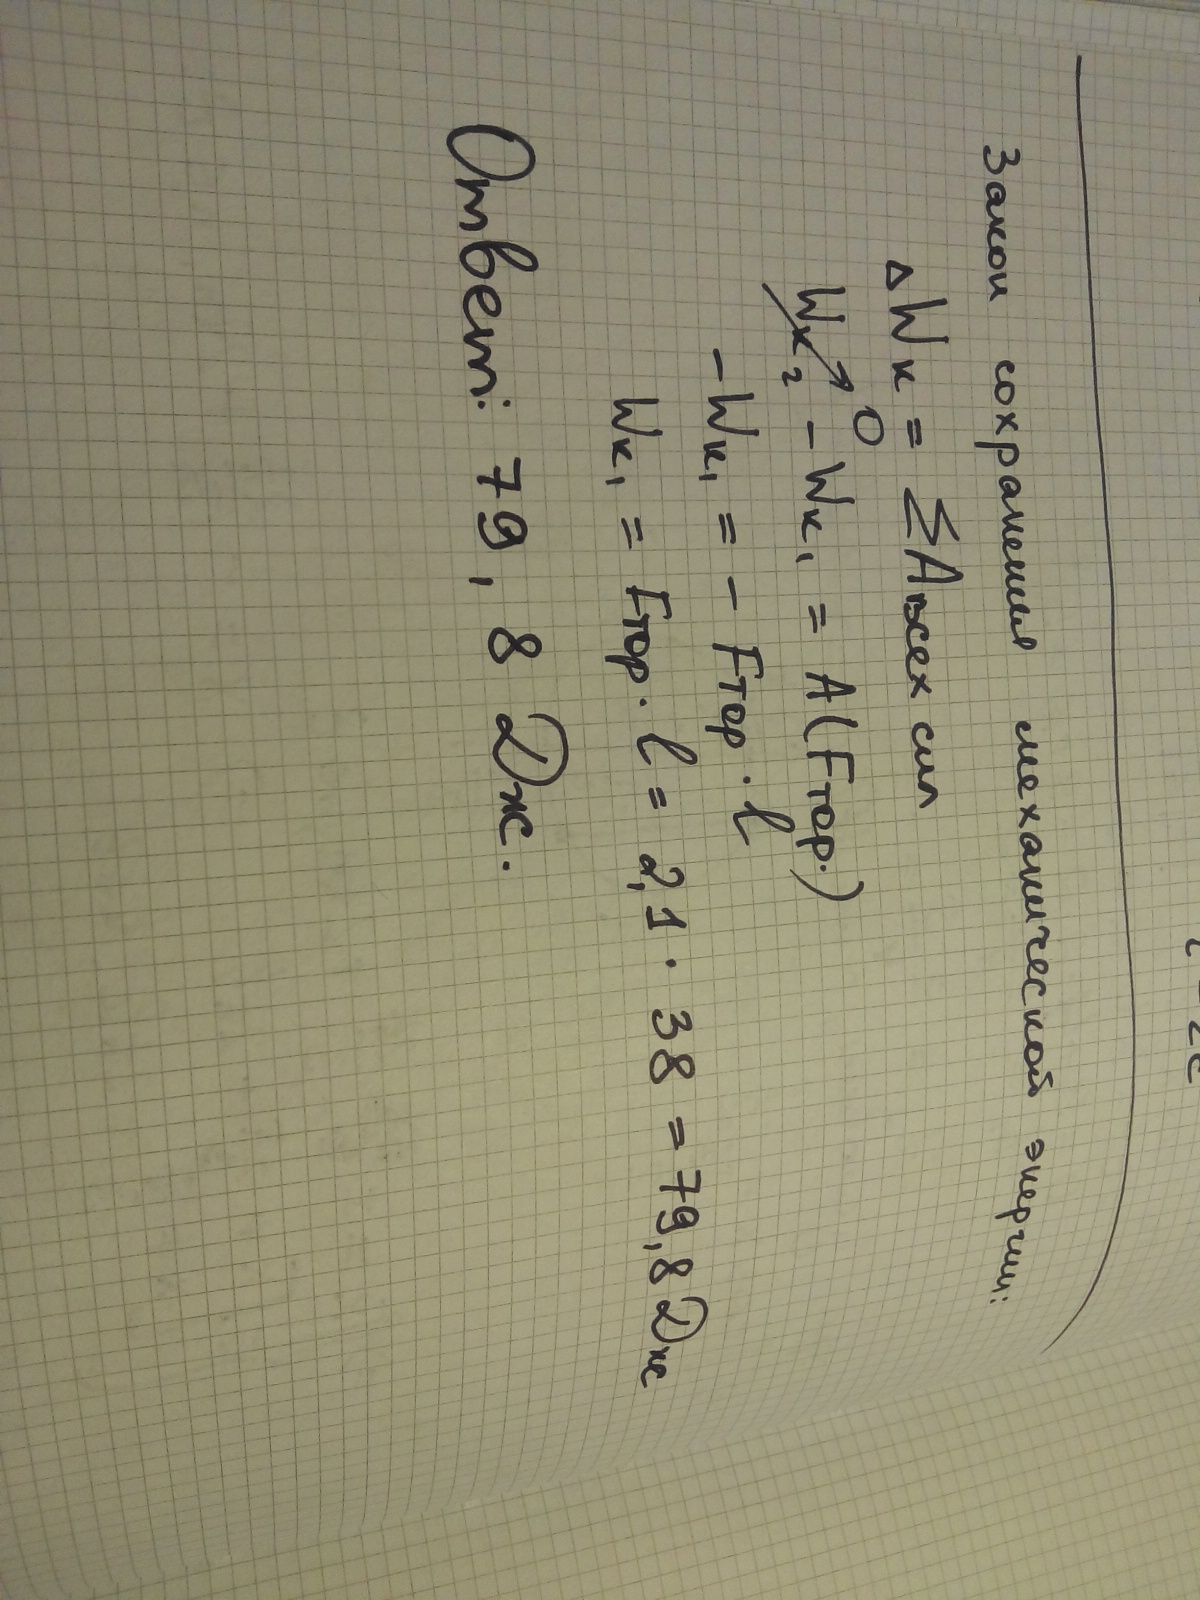 Закон сохранения механической энергии:
ΔWк = ΣАвсех сил
Wк₂ 0 - Wк₁ = A(Fтор.)
-Wк₁ = - Fтор · l
Wк₁ = Fтор · l = 2,1 · 38 = 79,8 Дж
Ответ: 79,8 Дж.